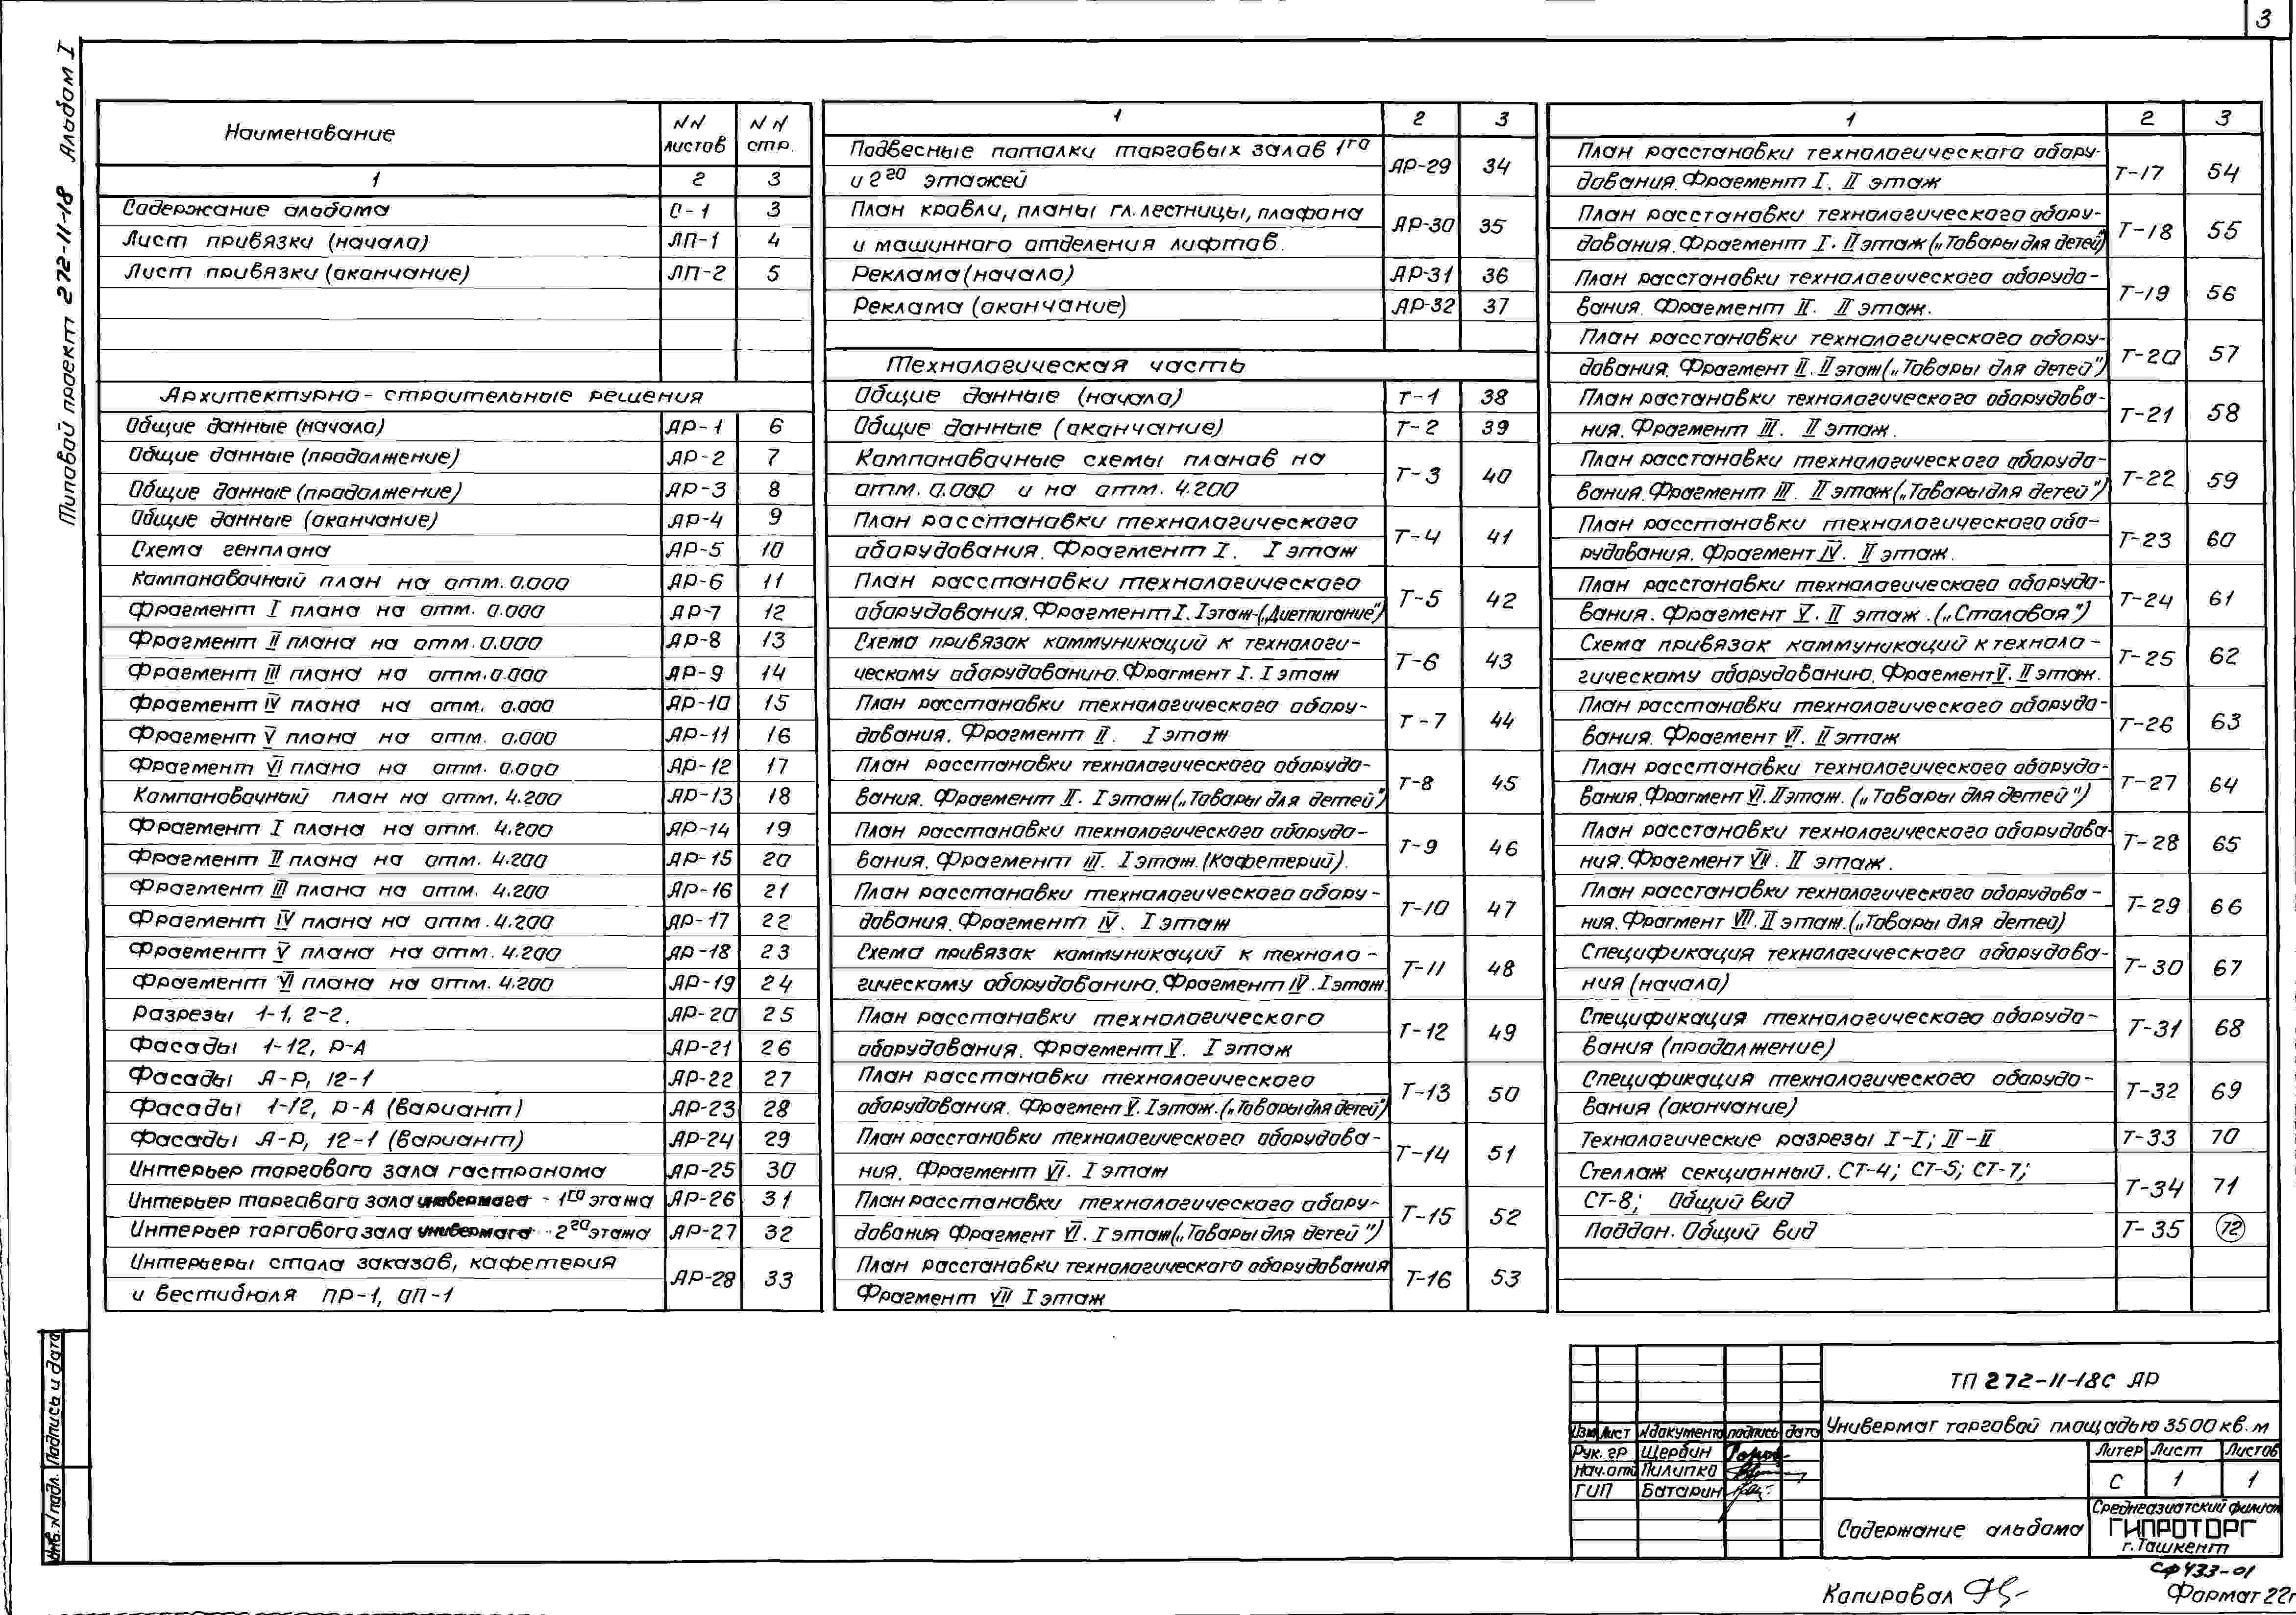 3
Типовой проект 272-11-18 Альбом I
Наименование NN листов NN стр.
1 2 3
Содержание альбома О-1 3
Лист привязки (начало) ЛП-1 4
Лист привязки (окончание) ЛП-2 5
Архитектурно-строительные решения
Общие данные (начало) АР-1 6
Общие данные (продолжение) АР-2 7
Общие данные (продолжение) АР-3 8
Общие данные (окончание) АР-4 9
Схема генплана АР-5 10
Компоновочный план на отм. 0.000 АР-6 11
Фрагмент I плана на отм. 0.000 АР-7 12
Фрагмент II плана на отм. 0.000 АР-8 13
Фрагмент III плана на отм. 0.000 АР-9 14
Фрагмент IV плана на отм. 0.000 АР-10 15
Фрагмент V плана на отм. 0.000 АР-11 16
Фрагмент VI плана на отм. 0.000 АР-12 17
Компоновочный план на отм. 4.200 АР-13 18
Фрагмент I плана на отм. 4.200 АР-14 19
Фрагмент II плана на отм. 4.200 АР-15 20
Фрагмент III плана на отм. 4.200 АР-16 21
Фрагмент IV плана на отм. 4.200 АР-17 22
Фрагмент V плана на отм. 4.200 АР-18 23
Фрагмент VI плана на отм. 4.200 АР-19 24
Разрезы 1-1, 2-2. АР-20 25
Фасады 1-12, Р-А АР-21 26
Фасады А-Р, 12-1 АР-22 27
Фасады 1-12, Р-А (вариант) АР-23 28
Фасады А-Р, 12-1 (вариант) АР-24 29
Интерьер торгового зала гастронома АР-25 30
Интерьер торгового зала универмага - 1го этажа АР-26 31
Интерьер торгового зала универмага - 2го этажа АР-27 32
Интерьеры стола заказов, кафетерия
и вестибюля ПР-1, ОП-1 АР-28 33
1 2 3
Подвесные потолки торговых залов 1го
и 2го этажей АР-29 34
План кровли, планы гл. лестницы, плафона
и машинного отделения лифтов. АР-30 35
Реклама (начало) АР-31 36
Реклама (окончание) АР-32 37
Технологическая часть
Общие данные (начало) Т-1 38
Общие данные (окончание) Т-2 39
Компоновочные схемы планов на
отм. 0.000 и на отм. 4.200 Т-3 40
План расстановки технологического
оборудования. Фрагмент I. I этаж Т-4 41
План расстановки технологического
оборудования. Фрагмент I. I этаж („Диетпитание") Т-5 42
Схема привязок коммуникаций к технологи-
ческому оборудованию. Фрагмент I. I этаж Т-6 43
План расстановки технологического обору-
дования. Фрагмент II. I этаж Т-7 44
План расстановки технологического оборудо-
вания. Фрагмент II. I этаж („Товары для детей") Т-8 45
План расстановки технологического оборудо-
вания. Фрагмент III. I этаж. (Кафетерий). Т-9 46
План расстановки технологического обору-
дования. Фрагмент IV. I этаж Т-10 47
Схема привязок коммуникаций к техноло-
гическому оборудованию. Фрагмент IV. I этаж. Т-11 48
План расстановки технологического
оборудования. Фрагмент V. I этаж Т-12 49
План расстановки технологического
оборудования. Фрагмент V. I этаж. („Товары для детей") Т-13 50
План расстановки технологического оборудова-
ния. Фрагмент VI. I этаж Т-14 51
План расстановки технологического обору-
дования Фрагмент VI. I этаж („Товары для детей") Т-15 52
План расстановки технологического оборудования
Фрагмент VII I этаж Т-16 53
1 2 3
План расстановки технологического обору-
дования. Фрагмент I. II этаж Т-17 54
План расстановки технологического обору-
дования. Фрагмент I. II этаж („Товары для детей") Т-18 55
План расстановки технологического оборудо-
вания. Фрагмент II. II этаж. Т-19 56
План расстановки технологического обору-
дования. Фрагмент II. II этаж („Товары для детей") Т-20 57
План растановки технологического оборудова-
ния. Фрагмент III. II этаж. Т-21 58
План расстановки технологического оборудо-
вания. Фрагмент III. II этаж („Товары для детей") Т-22 59
План расстановки технологического обо-
рудования. Фрагмент IV. II этаж. Т-23 60
План расстановки технологического оборудо-
вания. Фрагмент V. II этаж. („Столовая") Т-24 61
Схема привязок коммуникаций к техноло-
гическому оборудованию. Фрагмент V. II этаж. Т-25 62
План расстановки технологического оборудо-
вания. Фрагмент VI. II этаж Т-26 63
План расстановки технологического оборудо-
вания. Фрагмент VI. II этаж. („Товары для детей") Т-27 64
План расстановки технологического оборудова-
ния. Фрагмент VII. II этаж. Т-28 65
План расстановки технологического оборудова-
ния. Фрагмент VII. II этаж. („Товары для детей) Т-29 66
Спецификация технологического оборудова-
ния (начало) Т-30 67
Спецификация технологического оборудо-
вания (продолжение) Т-31 68
Спецификация технологического оборудо-
вания (окончание) Т-32 69
Технологические разрезы I-I; II-II Т-33 70
Стеллаж секционный. СТ-4; СТ-5; СТ-7;
СТ-8; Общий вид Т-34 71
Поддон. Общий вид Т-35 72
Инв. N подл. Подпись и дата
ТП 272-11-18С АР
Изм Лист N документа подпись дата
Универмаг торговой площадью 3500 кв. м
Рук. гр Щербин
Нач. отд Пилипко
ГИП Батарин
Литер Лист Листов
С 1 1
Содержание альбома
Среднеазиатский филиал
ГИПРОТОРГ
г. Ташкент
СФ 433-01
Копировал
Формат 22г